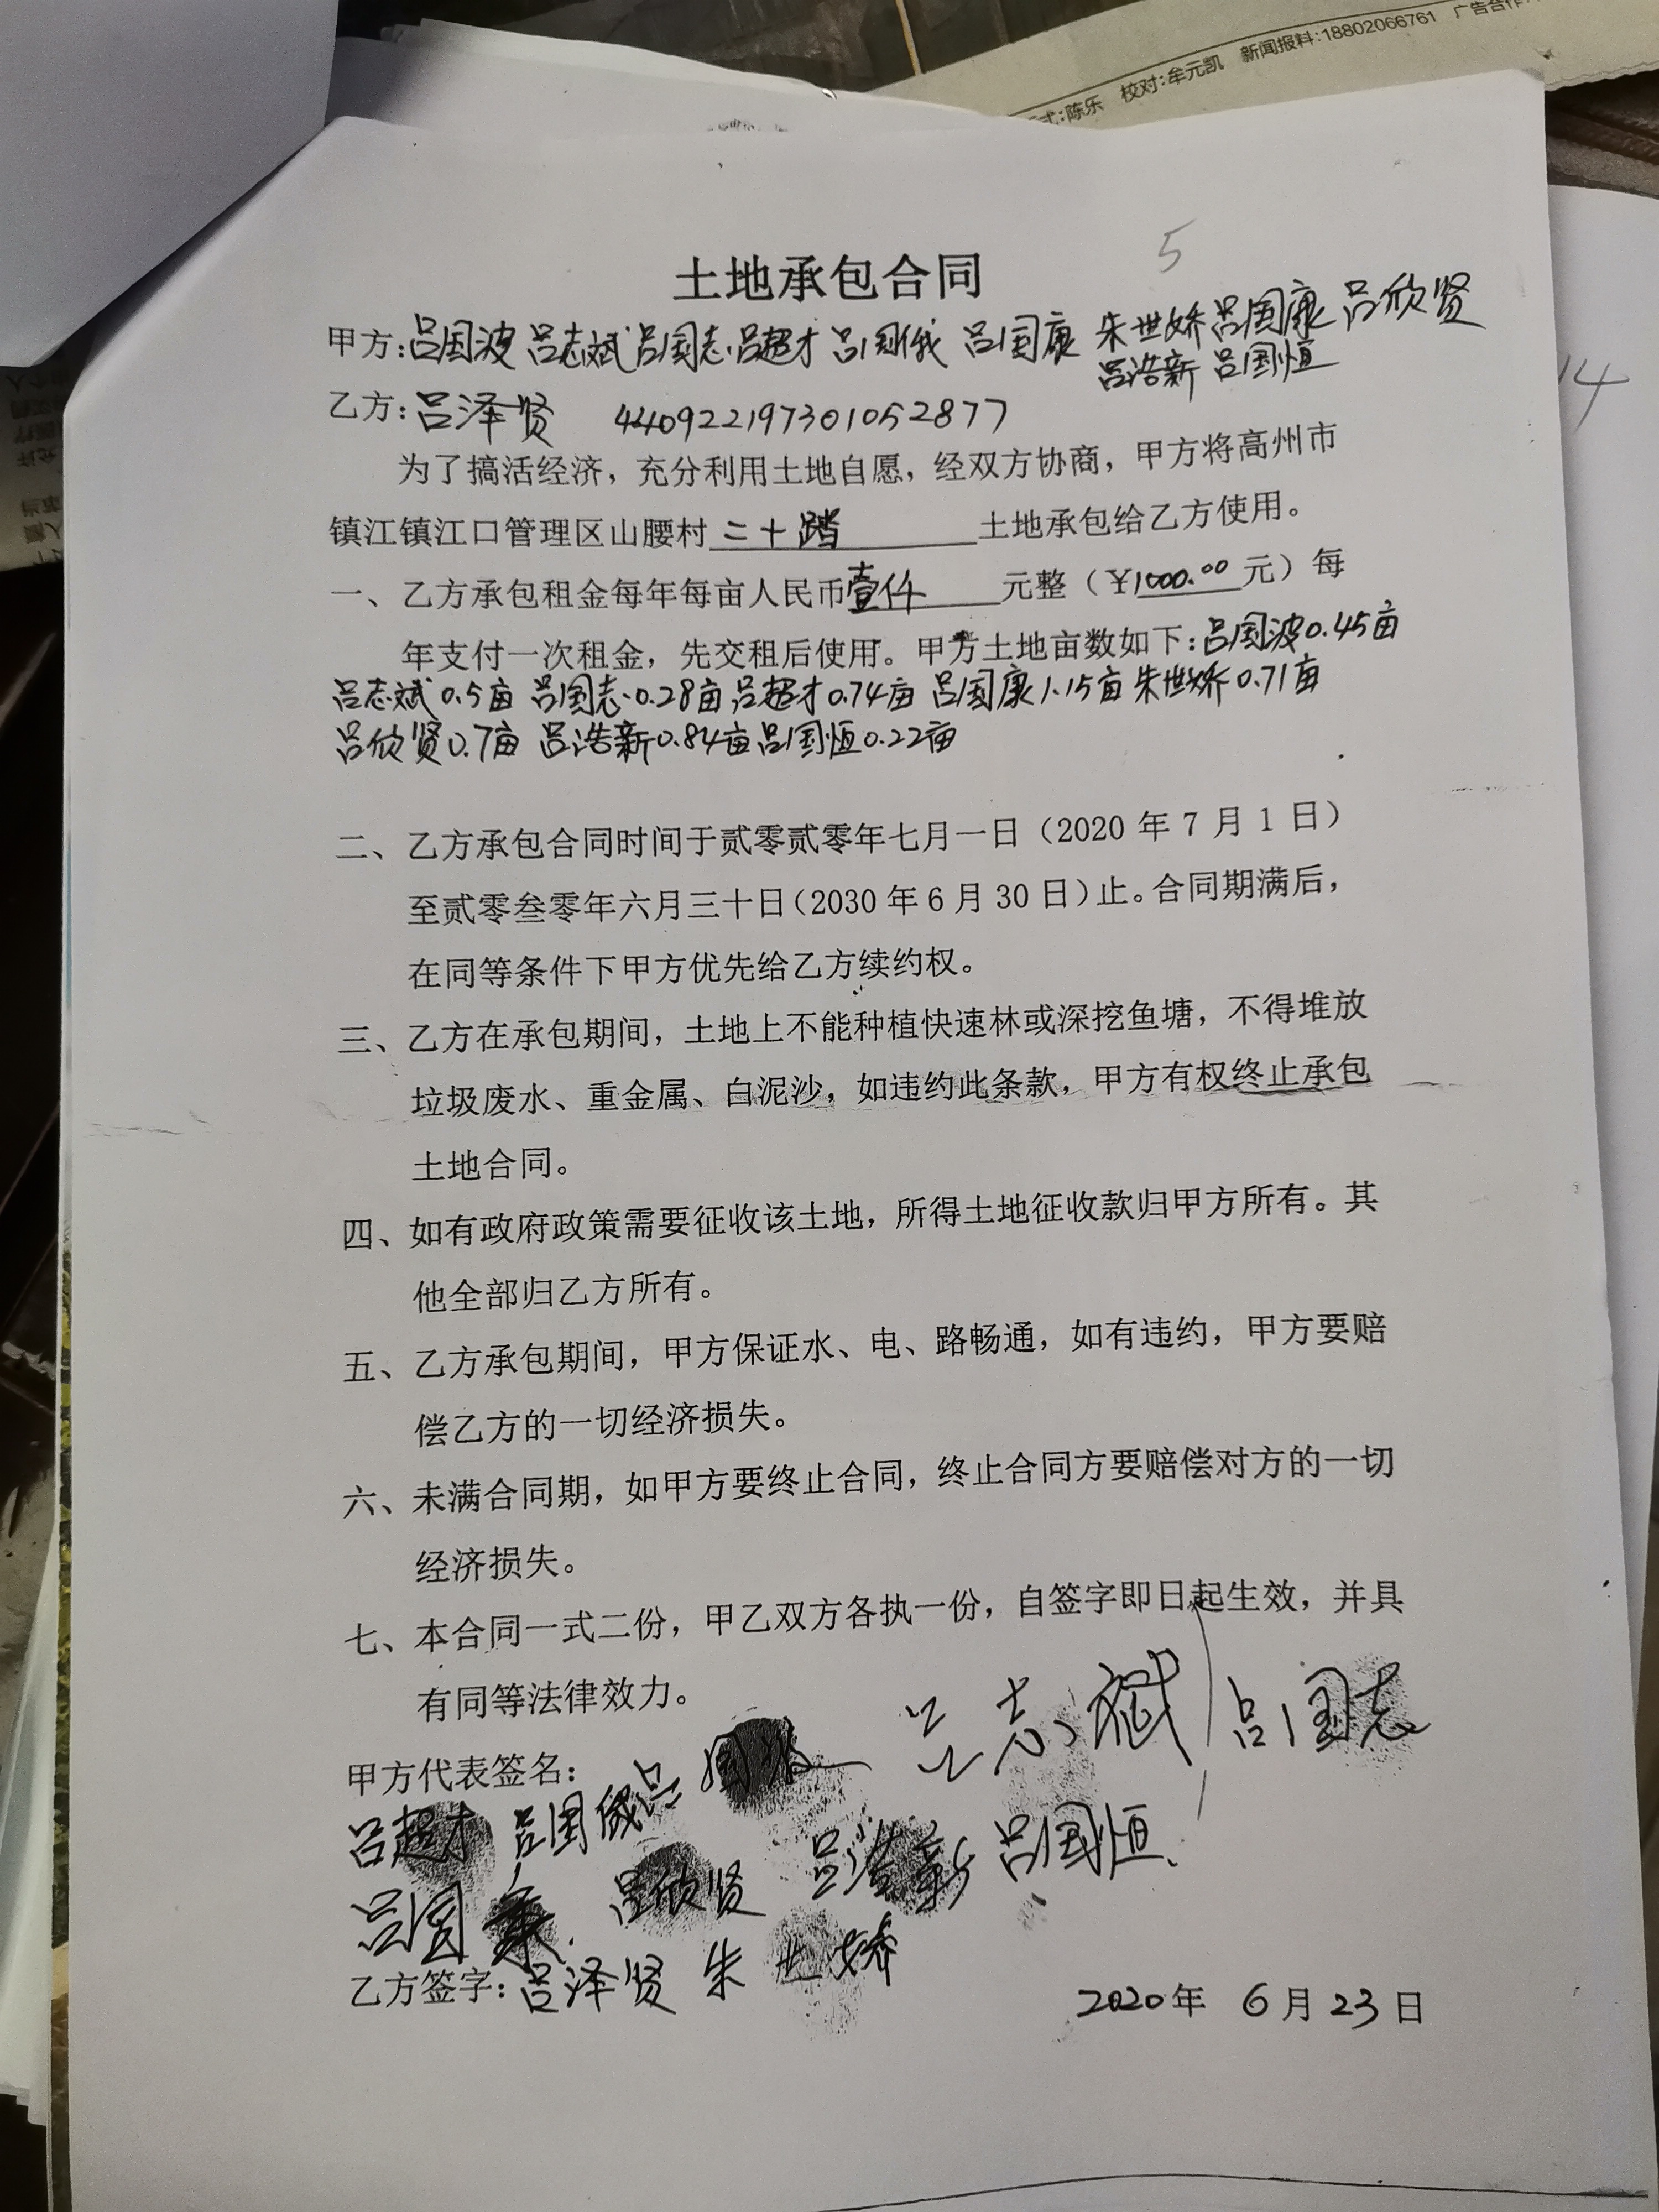 校对:牟元凯 新闻报料:18802066761 广告合作
式:陈乐
5
土地承包合同
甲方:吕国波 吕志斌 吕国志 吕超才 吕国俄 吕国康 朱世娇 吕国康 吕欣贤
吕浩新 吕国恒
14
乙方:吕泽贤 440922197301052877
为了搞活经济，充分利用土地自愿，经双方协商，甲方将高州市
镇江镇江口管理区山腰村二十踏土地承包给乙方使用。
一、乙方承包租金每年每亩人民币壹仟元整（¥1000.00元）每
年支付一次租金，先交租后使用。甲方土地亩数如下:吕国波0.45亩
吕志斌0.5亩 吕国志0.28亩 吕超才0.74亩 吕国康1.15亩 朱世娇0.71亩
吕欣贤0.7亩 吕浩新0.84亩 吕国恒0.22亩
二、乙方承包合同时间于贰零贰零年七月一日（2020年7月1日）
至贰零叁零年六月三十日（2030年6月30日）止。合同期满后，
在同等条件下甲方优先给乙方续约权。
三、乙方在承包期间，土地上不能种植快速林或深挖鱼塘，不得堆放
垃圾废水、重金属、白泥沙，如违约此条款，甲方有权终止承包
土地合同。
四、如有政府政策需要征收该土地，所得土地征收款归甲方所有。其
他全部归乙方所有。
五、乙方承包期间，甲方保证水、电、路畅通，如有违约，甲方要赔
偿乙方的一切经济损失。
六、未满合同期，如甲方要终止合同，终止合同方要赔偿对方的一切
经济损失。
七、本合同一式二份，甲乙双方各执一份，自签字即日起生效，并具
有同等法律效力。
甲方代表签名: 吕国波 吕志斌 吕国志
吕超才 吕国俄 吕浩新 吕国恒
吕国康 吕欣贤
乙方签字:吕泽贤 朱世娇
2020年 6月23日